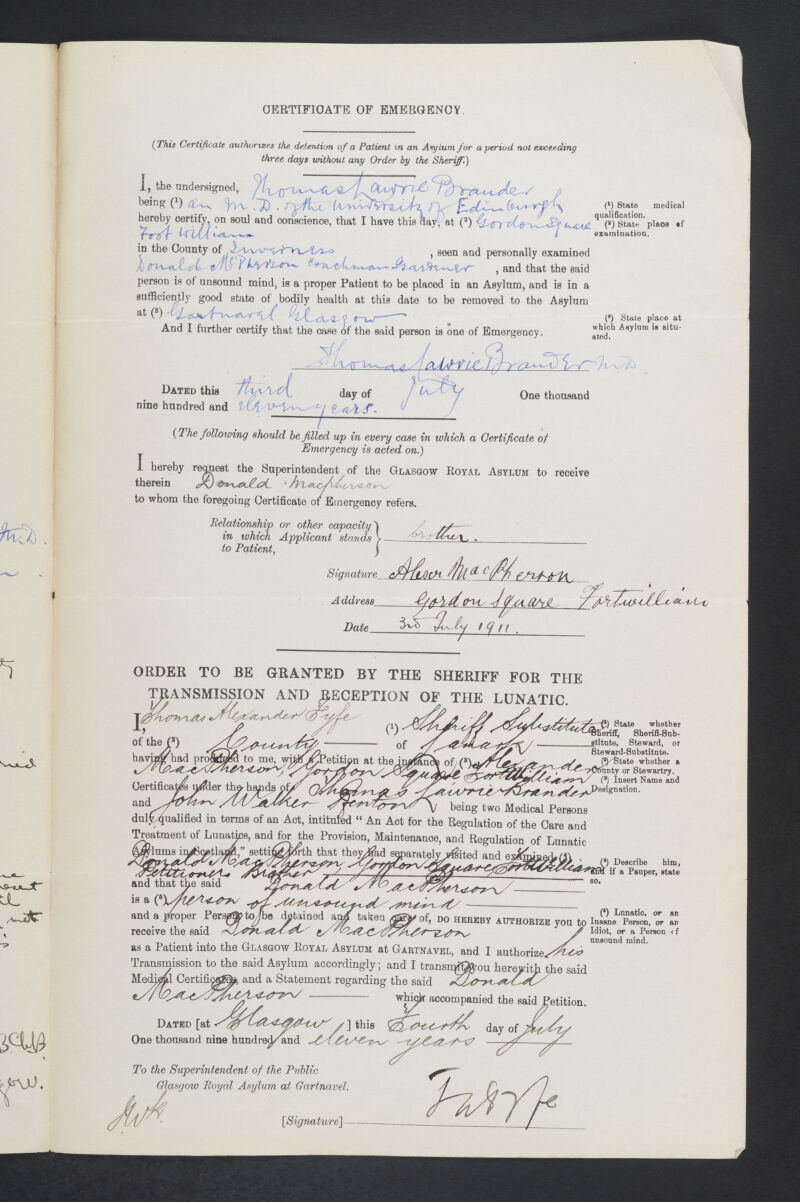 M.D.
CERTIFICATE OF EMERGENCY.
(This Certificate authorizes the detention of a Patient in an Asylum for a period not exceeding
three days without any Order by the Sheriff.)
I, the undersigned, Thomas Lawrie Brander
being (1) an M.D. of the University of Edinburgh
(1) State medical
qualification.
hereby certify, on soul and conscience, that I have this day, at (2) Gordon Square
(2) State place of
examination.
Fort William
in the County of Inverness , seen and personally examined
Donald McPherson Coachman Gardener , and that the said
person is of unsound mind, is a proper Patient to be placed in an Asylum, and is in a
sufficiently good state of bodily health at this date to be removed to the Asylum
at (3) Gartnavel Glasgow
(3) State place at
which Asylum is situ-
ated.
And I further certify that the case of the said person is one of Emergency.
Thomas Lawrie Brander M.D.
DATED this third day of July One thousand
nine hundred and eleven years.
(The following should be filled up in every case in which a Certificate of
Emergency is acted on.)
I hereby request the Superintendent of the GLASGOW ROYAL ASYLUM to receive
therein Donald Macpherson
to whom the foregoing Certificate of Emergency refers.
Relationship or other capacity
in which Applicant stands
to Patient,
brother.
Signature Alexr MacPherson
Address Gordon Square Fortwilliam
Date 3rd July 1911.
ORDER TO BE GRANTED BY THE SHERIFF FOR THE
TRANSMISSION AND RECEPTION OF THE LUNATIC.
I, Thomas Alexander Fyfe (1) Sheriff Substitute
(1) State whether
Sheriff, Sheriff-Sub-
stitute, Steward, or
Steward-Substitute.
of the (2) County of Lanark
(2) State whether a
County or Stewartry.
having had produced to me, with a Petition at the instance of (3) Alexander
(3) Insert Name and
Designation.
MacPherson, Gordon Square Fort William
Certificates under the hands of Thomas Lawrie Brander
and John Walker Fenton being two Medical Persons
duly qualified in terms of an Act, intituled "An Act for the Regulation of the Care and
Treatment of Lunatics, and for the Provision, Maintenance, and Regulation of Lunatic
Asylums in Scotland," setting forth that they had separately visited and examined (4)
Donald MacPherson Gordon Square Fort William
Petitioners Brother
(4) Describe him,
and if a Pauper, state
so.
and that the said Donald MacPherson
is a (5) person of unsound mind
and a proper Person to be detained and taken care of, DO HEREBY AUTHORIZE you to
(5) Lunatic, or an
Insane Person, or an
Idiot, or a Person of
unsound mind.
receive the said Donald MacPherson
as a Patient into the GLASGOW ROYAL ASYLUM AT GARTNAVEL, and I authorize his
Transmission to the said Asylum accordingly; and I transmit you herewith the said
Medical Certificates, and a Statement regarding the said Donald
MacPherson which accompanied the said Petition.
DATED [at Glasgow ] this Fourth day of July
One thousand nine hundred and eleven years
To the Superintendent of the Public
Glasgow Royal Asylum at Gartnavel.
[Signature]